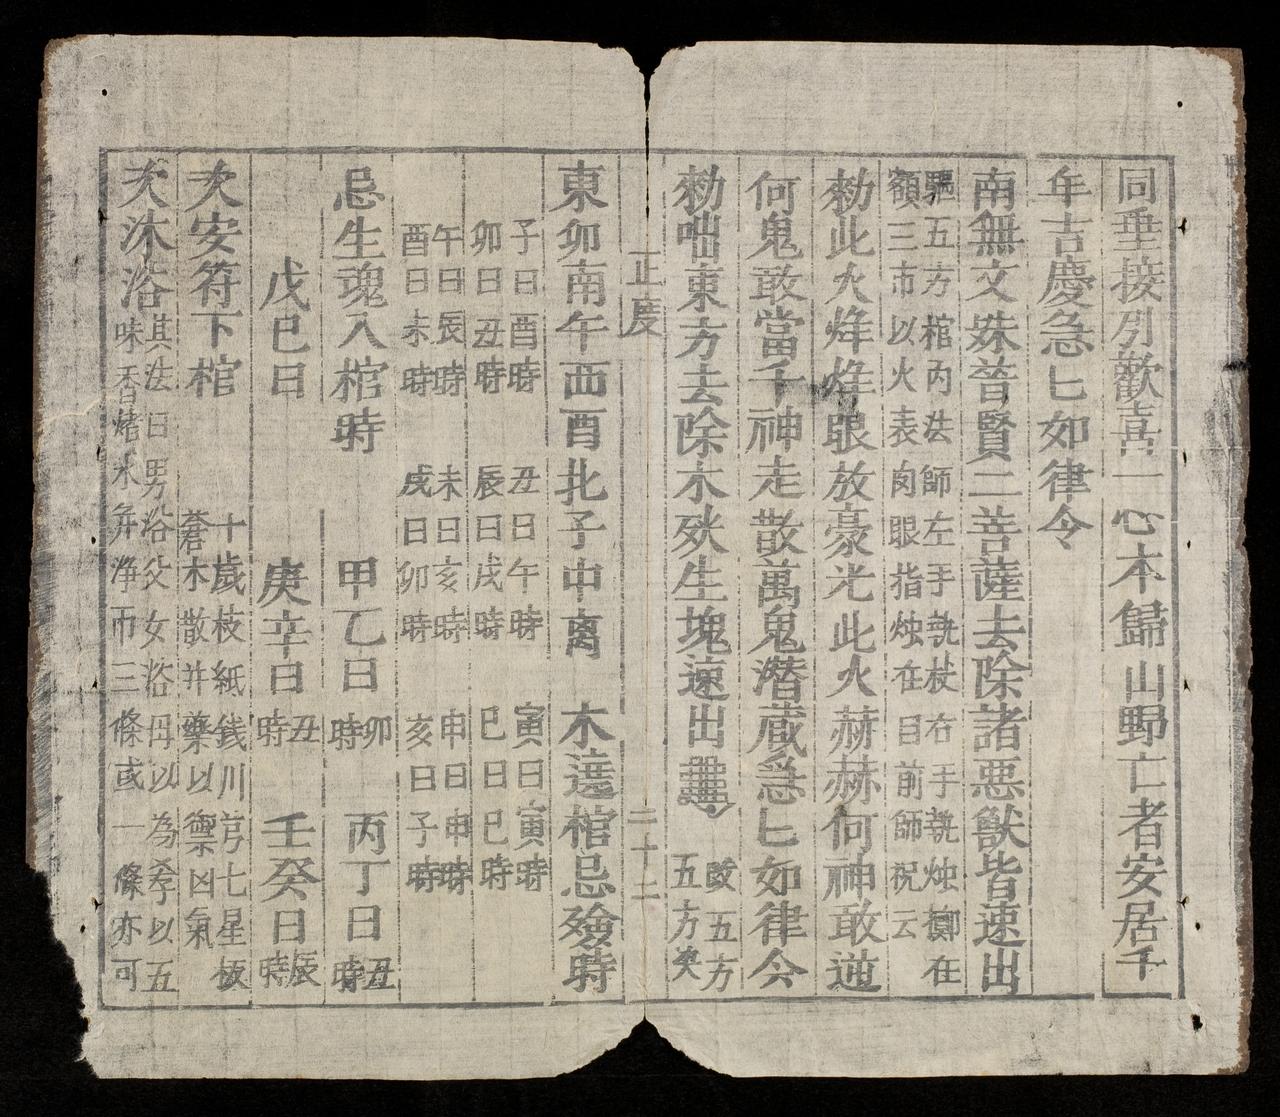 同垂接列歡喜一心本歸山野亡者安居千
年吉慶急匕如律令
南無文殊普賢二菩薩去除諸惡獸皆速出
驅五方棺内法師左手執杖右手執烛擲在
額三市以火表肉眼指烛在目前師祝云
勑此火烽烽眼放豪光此火赫赫何神敢
何鬼敢當千神走散萬鬼潜蔵急匕如律令
勑咄東方去除木殃生塊速出
五方
五方
正度
二十二
東卯南午西酉北子中离 木造棺忌殮時
子日酉時 丑日午時 寅日寅時
卯日丑時 辰日戌時 巳日巳時
午日辰時 未日亥時 申日申時
酉日未時 戌日卯時 亥日子時
忌生魂入棺時 甲乙日卯時 丙丁日丑時
戊巳日 庚辛日丑時 壬癸日辰時
次安符下棺
十歲枝紙銭川芎七星板
蒼木散并藥以禦凶氣
次沐浴
其法曰男浴父女浴母以為孝以五
味香㷛水并净币三條或一條亦可